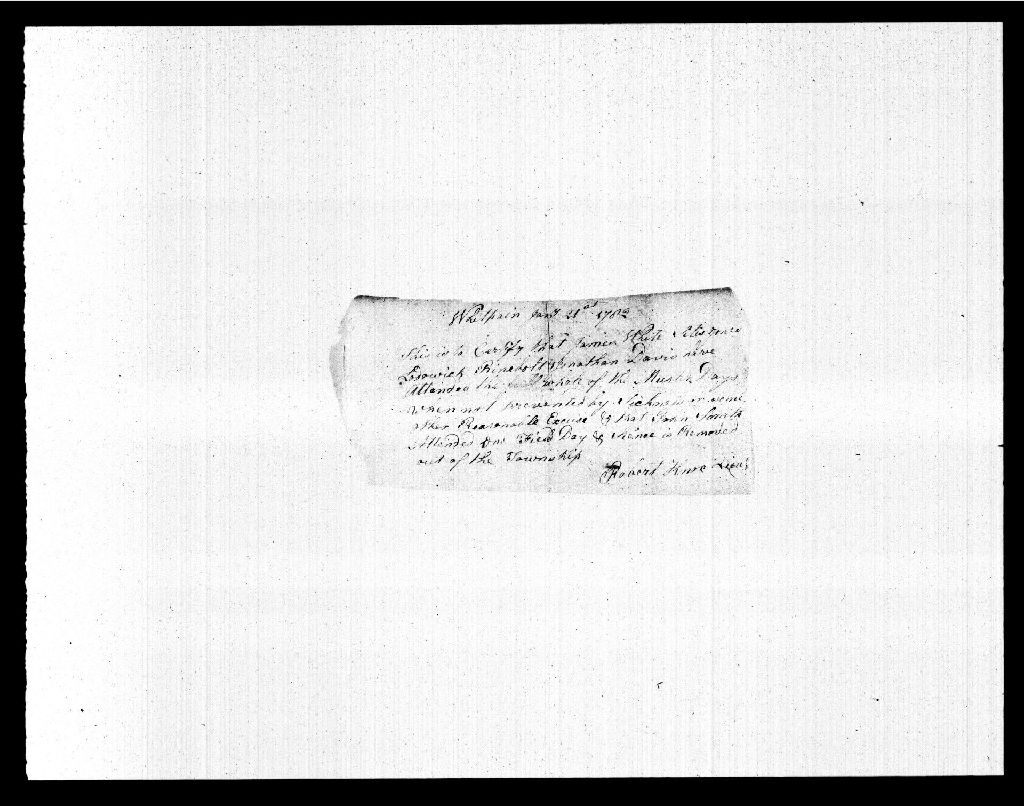 Whitpain Jany 21st 1782
This is to Certify that James White
Lodowick Rinebolt & Jonathan Davis have
Attended the whole of the Muster Days
when not prevented by Sickness or some
other Reasonable Excuse & that John Smith
Attended one Field Day & Sience is Removed
out of the Township
Robert Knox Lieut